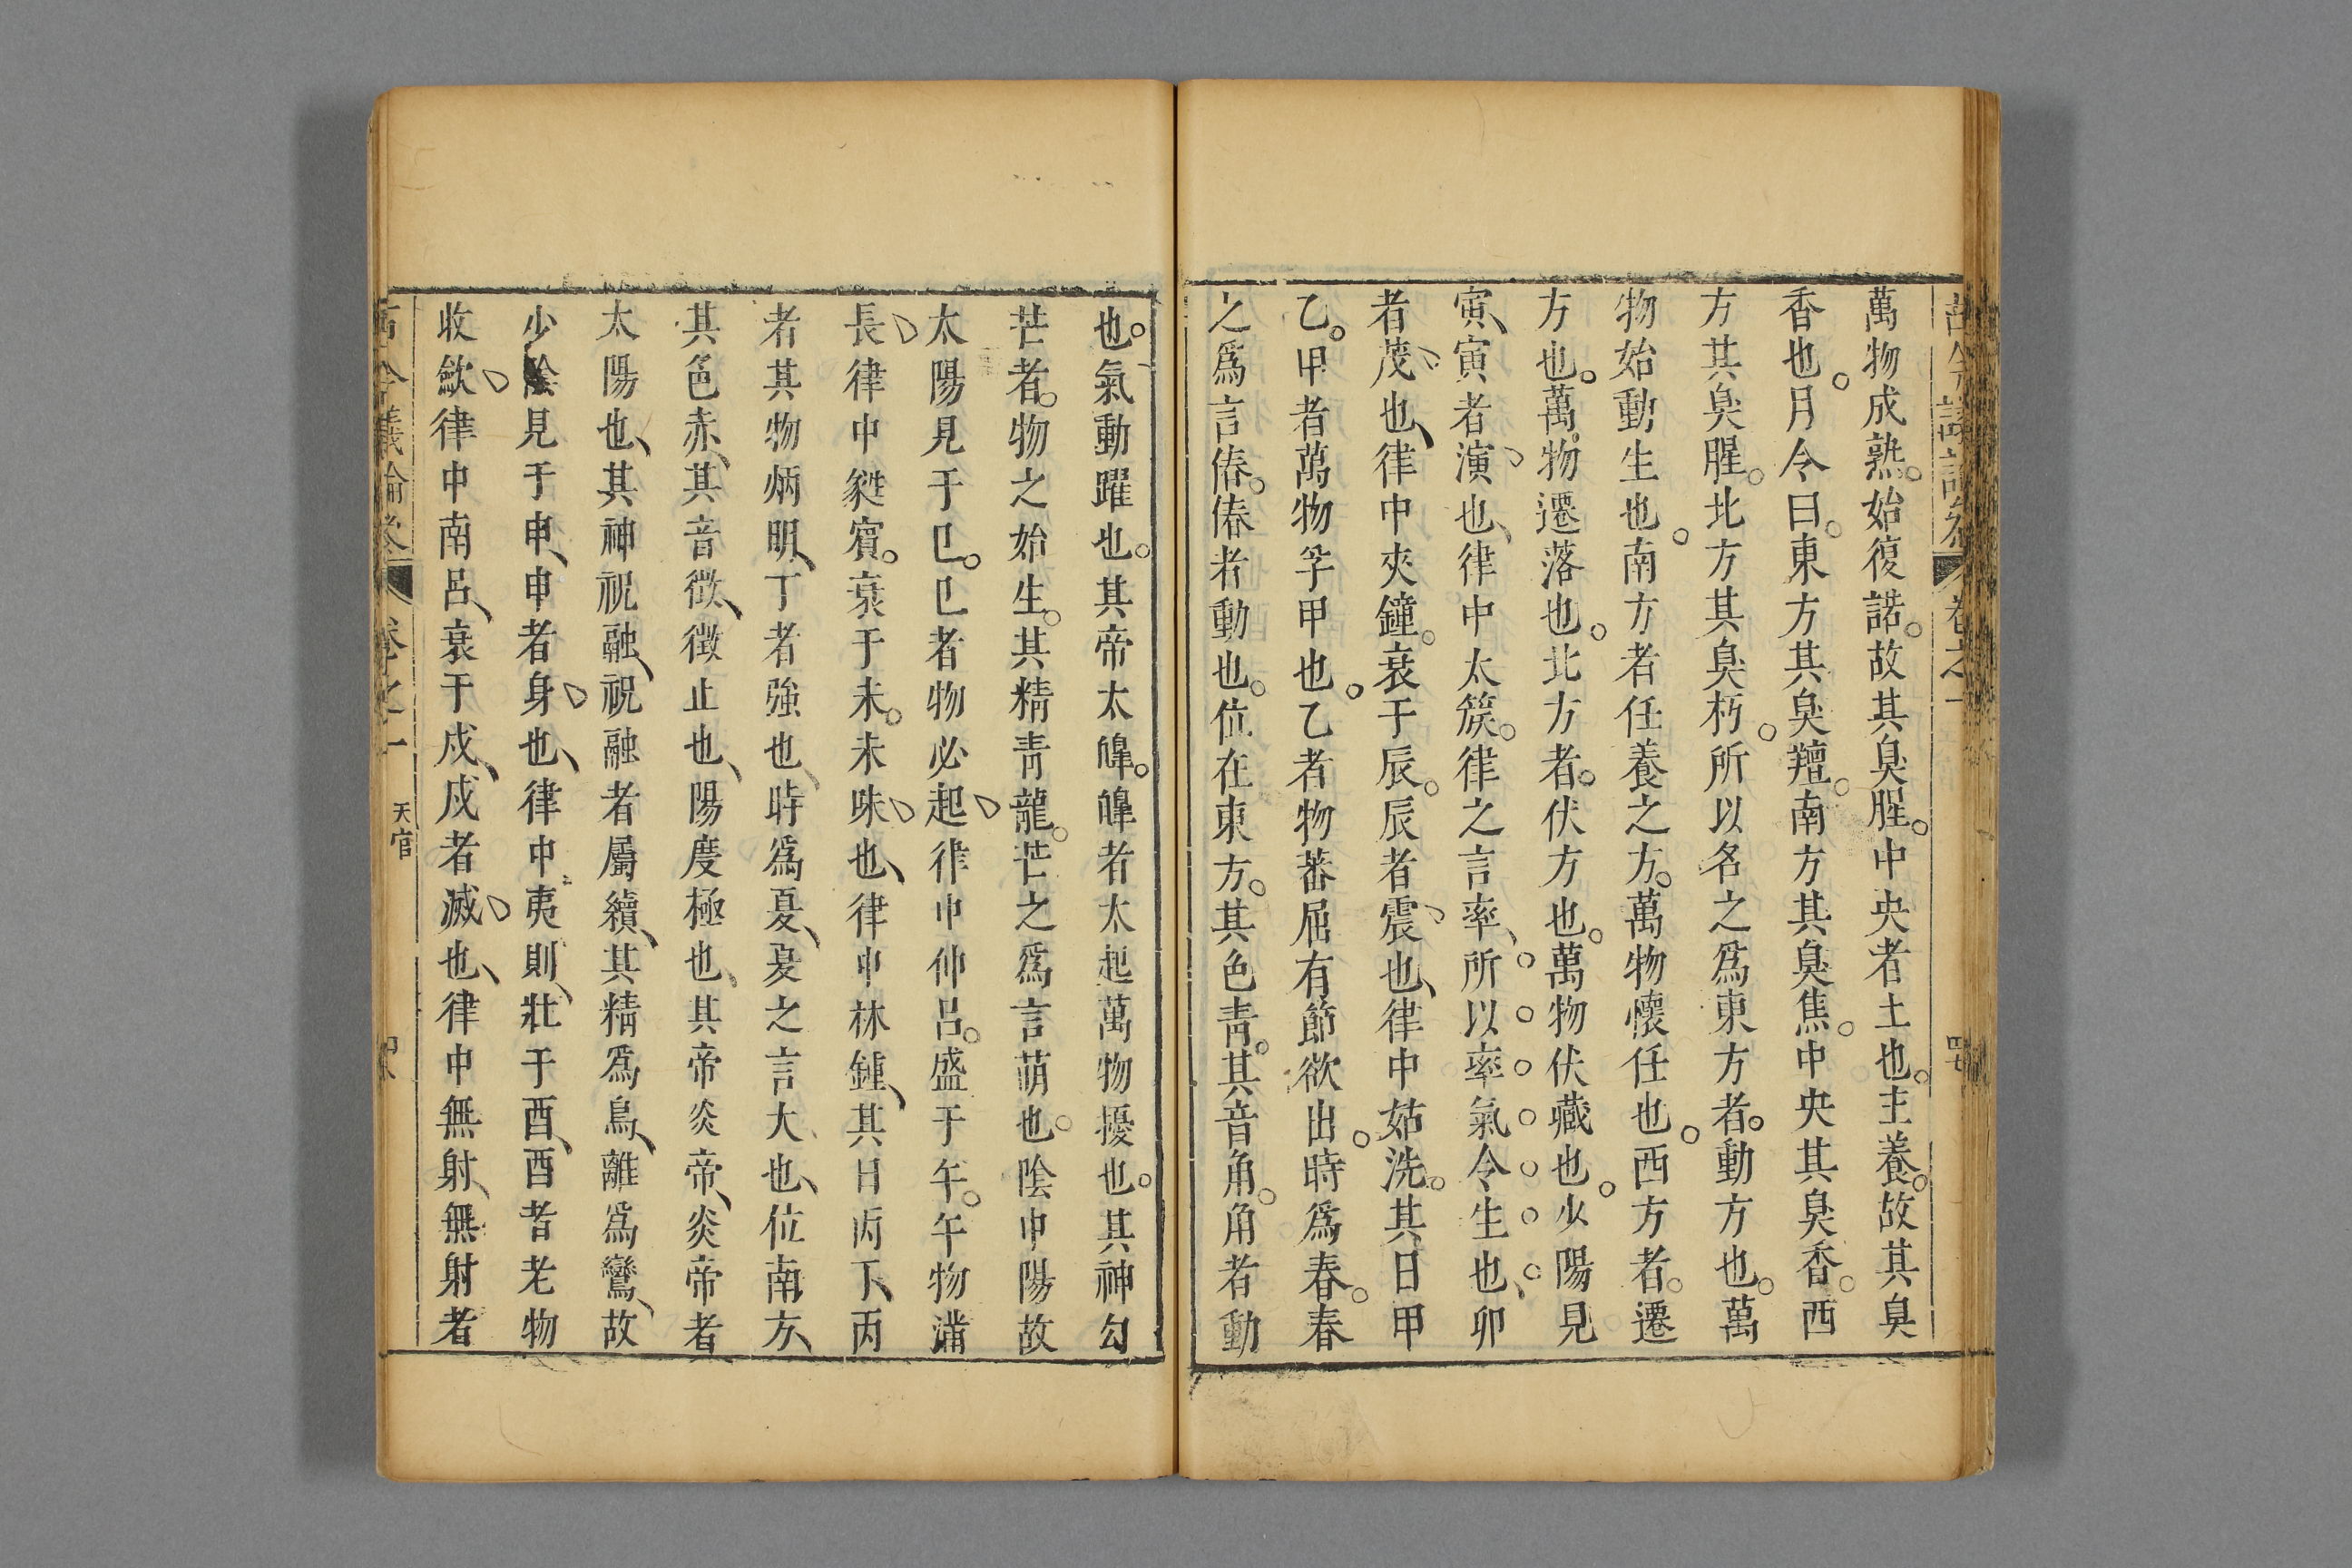 萬物成熟。始復諾。故其臭腥。中央者土也。主養。故其臭
香也。月令曰。東方其臭羶。南方其臭焦。中央其臭香。西
方其臭腥。北方其臭朽。所以名之爲東方者。動方也。萬
物始動生也。南方者任養之方。萬物懷任也。西方者。遷
方也。萬物遷落也。北方者。伏方也。萬物伏藏也。少陽見
寅、寅者演也、律中太簇。律之言率、所以率氣令生也、卯
者茂也、律中夾鐘。衰于辰。辰者震也、律中姑洗。其日甲
乙。甲者萬物孚甲也。乙者物蕃屈有節欲出。時爲春。春
之爲言偆。偆者動也。位在東方。其色靑。其音角。角者動
也。氣動躍也。其帝太皥。皥者太起萬物擾也。其神勾
芒者。物之始生。其精靑龍。芒之爲言萌也。陰中陽故
太陽見于巳。巳者物必起律中仲呂。盛于午。午物滿
長律中蕤賓。衰于未。未味也、律中林鍾、其日丙丁、丙
者其物炳明、丁者強也、時爲夏、夏之言大也、位南方、
其色赤、其音徴、徴止也、陽度極也、其帝炎帝、炎帝者
太陽也、其神祝融、祝融者屬續、其精爲鳥、離爲鸞、故
少陰見于申、申者身也、律中夷則、壯于酉、酉者老物
收斂律中南呂、衰于戍、戍者滅也、律中無射、無射者
古今議論叅
卷之一
天官